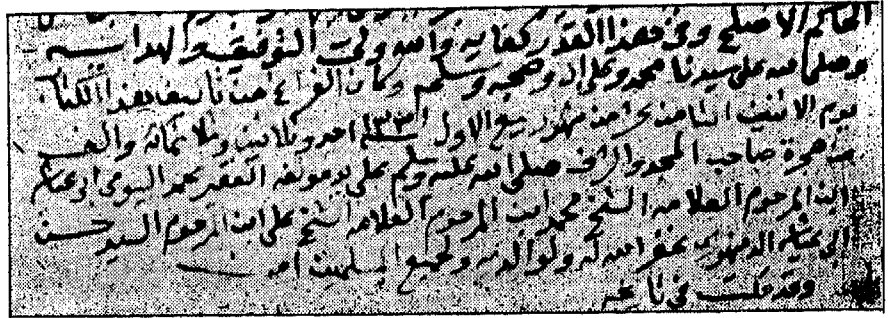 الحاكم الاصلح وفي هذا القدر كفايه والله ولي التوفيق والهدايه
وصلى الله على سيدنا محمد وعلى اله وصحبه وسلم وكان الفراغ من تاليف هذا الكتاب
يوم الاثنين الثامن من شهر ربيع الاول ١٣٣١ احد وثلاثين وثلاثمائة والف
من هجرة صاحب المجد والشرف صلى الله عليه وسلم على يد مولفه الفقير محمد
ابن المرحوم العلامه الشيخ محمد ابن المرحوم العلامه الشيخ على ابن المرحوم السيد حسن
الدمنهوري غفر الله له ولوالديه ولجميع المسلمين امين
وقد قلت في تاريخه